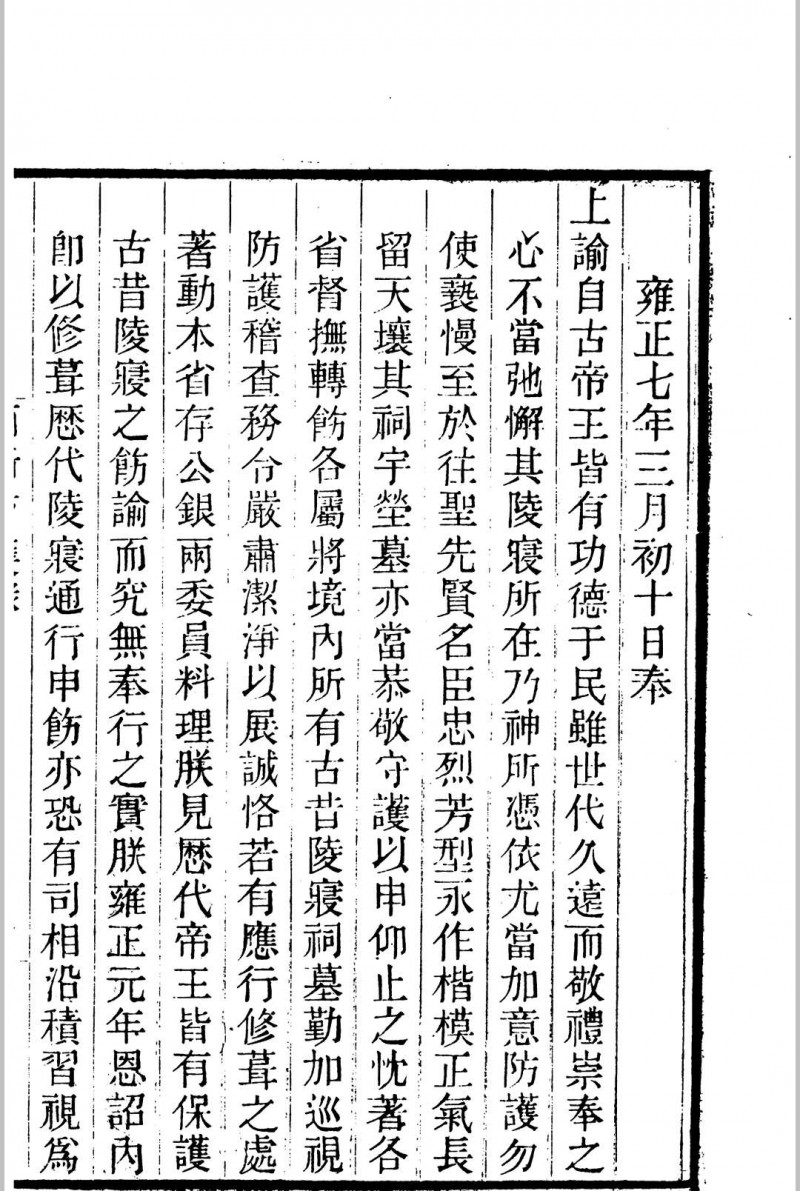 雍正七年三月初十日奉
上諭自古帝王皆有功德于民雖世代久遠而敬禮崇奉之
心不當弛懈其陵寢所在乃神所憑依尤當加意防護勿
使褻慢至於往聖先賢名臣忠烈芳型永作楷模正氣長
留天壤其祠宇塋墓亦當恭敬守護以申仰止之忱著各
省督撫轉飭各屬將境內所有古昔陵寢祠墓勤加巡視
防護稽查務令嚴肅潔淨以展誠恪若有應行修葺之處
著動本省存公銀兩委員料理朕見歷代帝王皆有保護
古昔陵寢之飭諭而究無奉行之實朕雍正元年恩詔內
卽以修葺歷代陵寢通行申飭亦恐有司相沿積習視爲